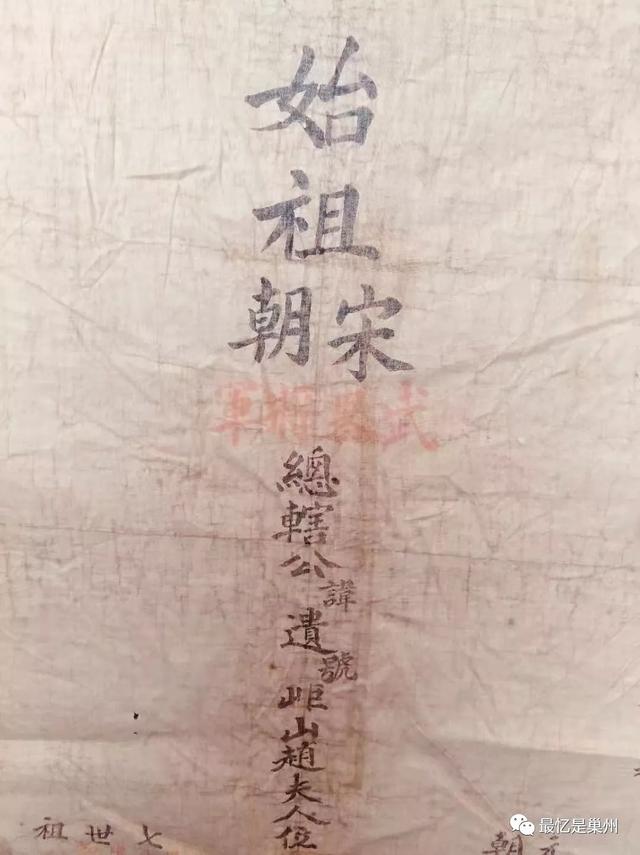 始祖
宋朝
武 將軍
總轄公諱遺號岠山趙夫人位
七世祖
元朝
最忆是巢州